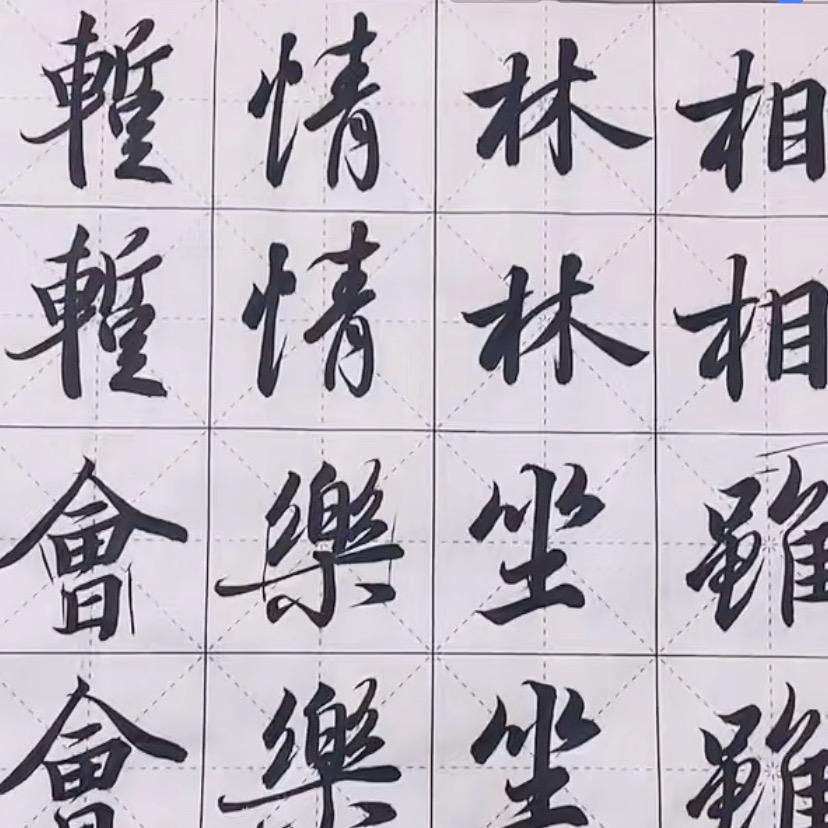 暫情林相
暫情林相
會樂坐雖
會樂坐雖